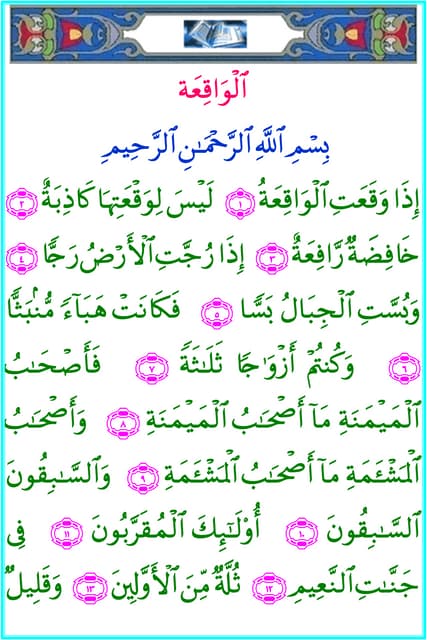 ٱلْوَاقِعَة
بِسْمِ ٱللَّهِ ٱلرَّحْمَٰنِ ٱلرَّحِيمِ
إِذَا وَقَعَتِ ٱلْوَاقِعَةُ ١ لَيْسَ لِوَقْعَتِهَا كَاذِبَةٌ ٢
خَافِضَةٌ رَّافِعَةٌ ٣ إِذَا رُجَّتِ ٱلْأَرْضُ رَجًّا ٤
وَبُسَّتِ ٱلْجِبَالُ بَسًّا ٥ فَكَانَتْ هَبَآءً مُّنۢبَثًّا
٦ وَكُنتُمْ أَزْوَٰجًا ثَلَٰثَةً ٧ فَأَصْحَٰبُ
ٱلْمَيْمَنَةِ مَآ أَصْحَٰبُ ٱلْمَيْمَنَةِ ٨ وَأَصْحَٰبُ
ٱلْمَشْـَٔمَةِ مَآ أَصْحَٰبُ ٱلْمَشْـَٔمَةِ ٩ وَٱلسَّٰبِقُونَ
ٱلسَّٰبِقُونَ ١٠ أُو۟لَٰٓئِكَ ٱلْمُقَرَّبُونَ ١١ فِى
جَنَّٰتِ ٱلنَّعِيمِ ١٢ ثُلَّةٌ مِّنَ ٱلْأَوَّلِينَ ١٣ وَقَلِيلٌ